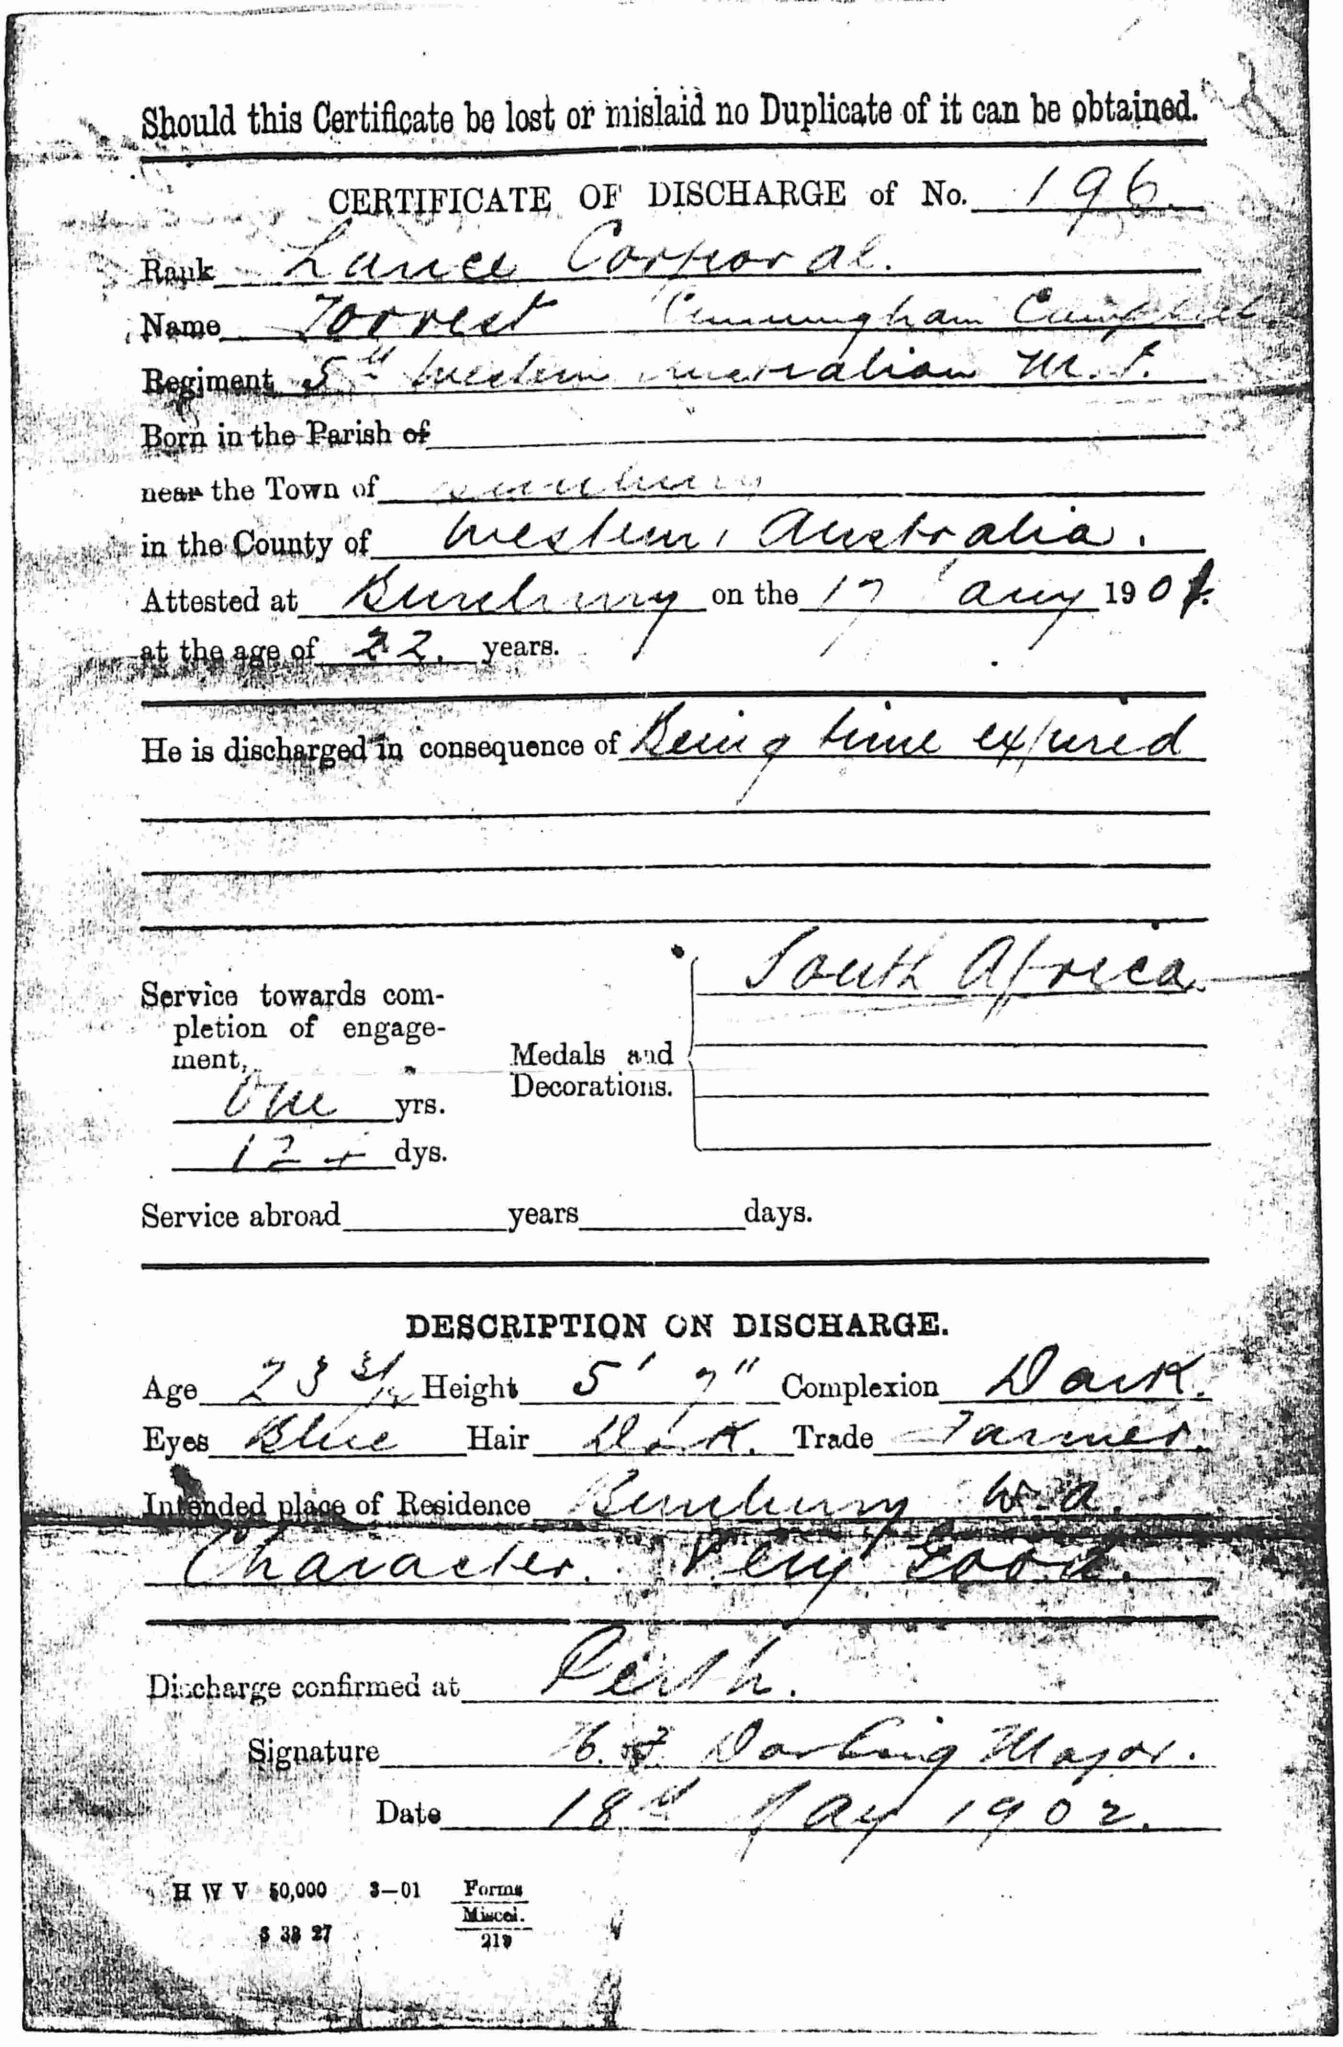 Should this Certificate be lost or mislaid no Duplicate of it can be obtained.
CERTIFICATE OF DISCHARGE of No. 196
Rank Lance Corporal.
Name Forrest Cunningham Campbell
Regiment 5th Western Australian M.I.
Born in the Parish of
near the Town of Bunbury
in the County of Western Australia.
Attested at Bunbury on the 17 1901.
at the age of 22. years.
He is discharged in consequence of Being time expired
South Africa
Service towards com-
pletion of engage-
ment,
Medals and
Decorations.
One yrs.
12 dys.
Service abroad years days.
DESCRIPTION ON DISCHARGE.
Age 23 3/12 Height 5' 7" Complexion Dark.
Eyes Blue Hair Dark. Trade Farmer.
Intended place of Residence Bunbury W.A.
Character. Very Good.
Discharge confirmed at Perth.
Signature Darling Major.
Date 18th May 1902.
H W V 50,000 3-01 Forms
Miscel.
38 27